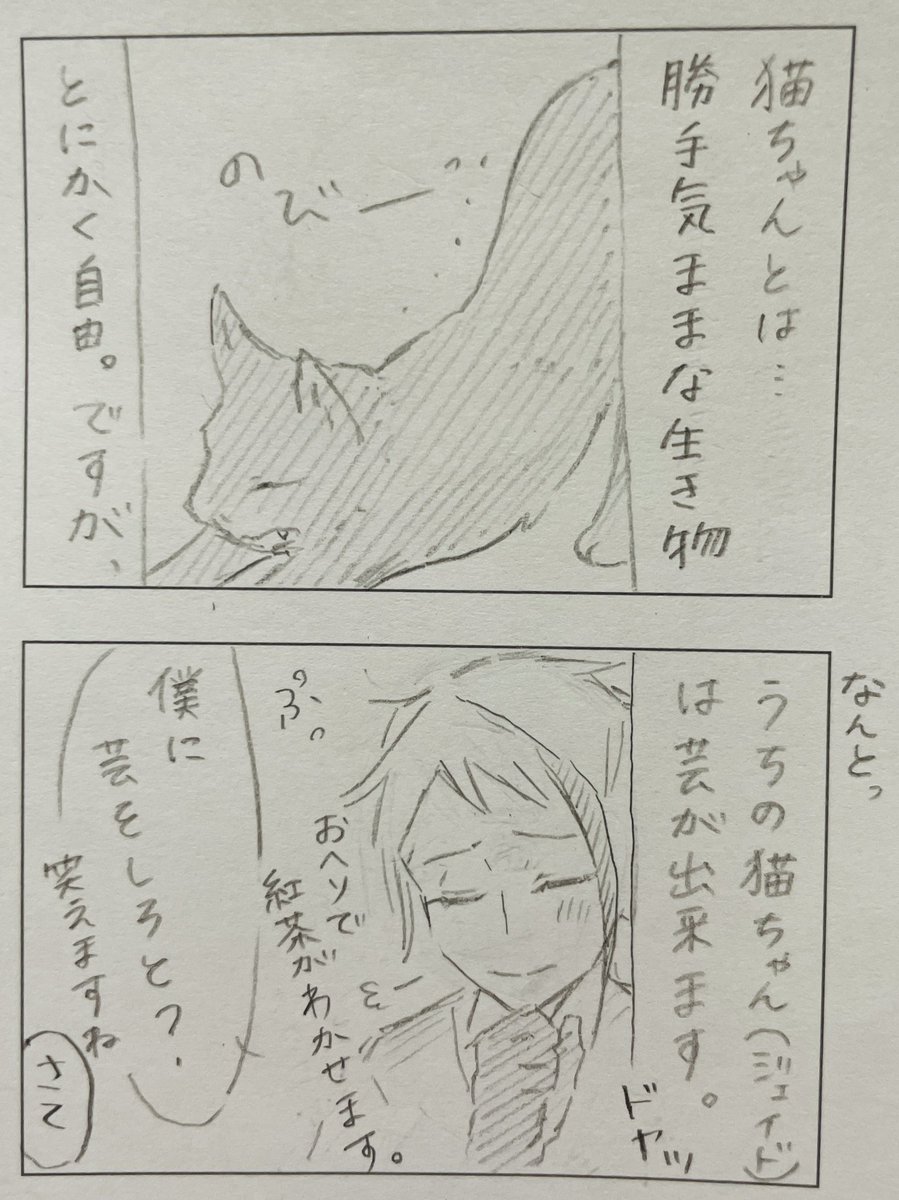 猫ちゃんとは…
勝手気ままな生き物
のびーっ
とにかく自由。ですが、
なんとっ
うちの猫ちゃん(ジェイド)
は芸が出来ます。
ドヤッ
おヘソで
紅茶がわかせます。
ぷっ
僕に
芸をしろと?
笑えますね
さて